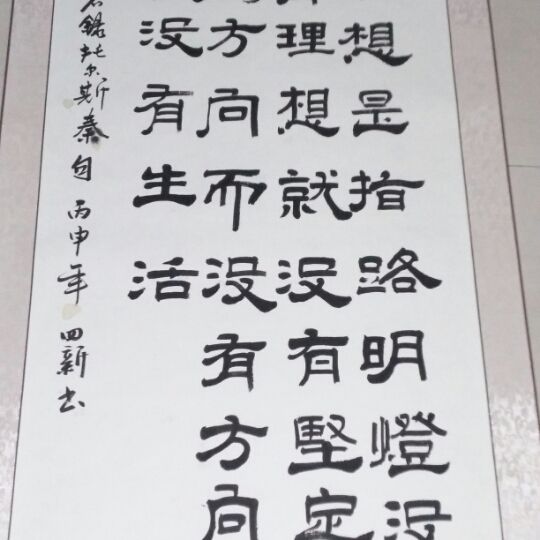 想是指路明燈没
理想就没有堅定
方向而没有方向
没有生活
錄托尔斯泰句 丙申年 四新书